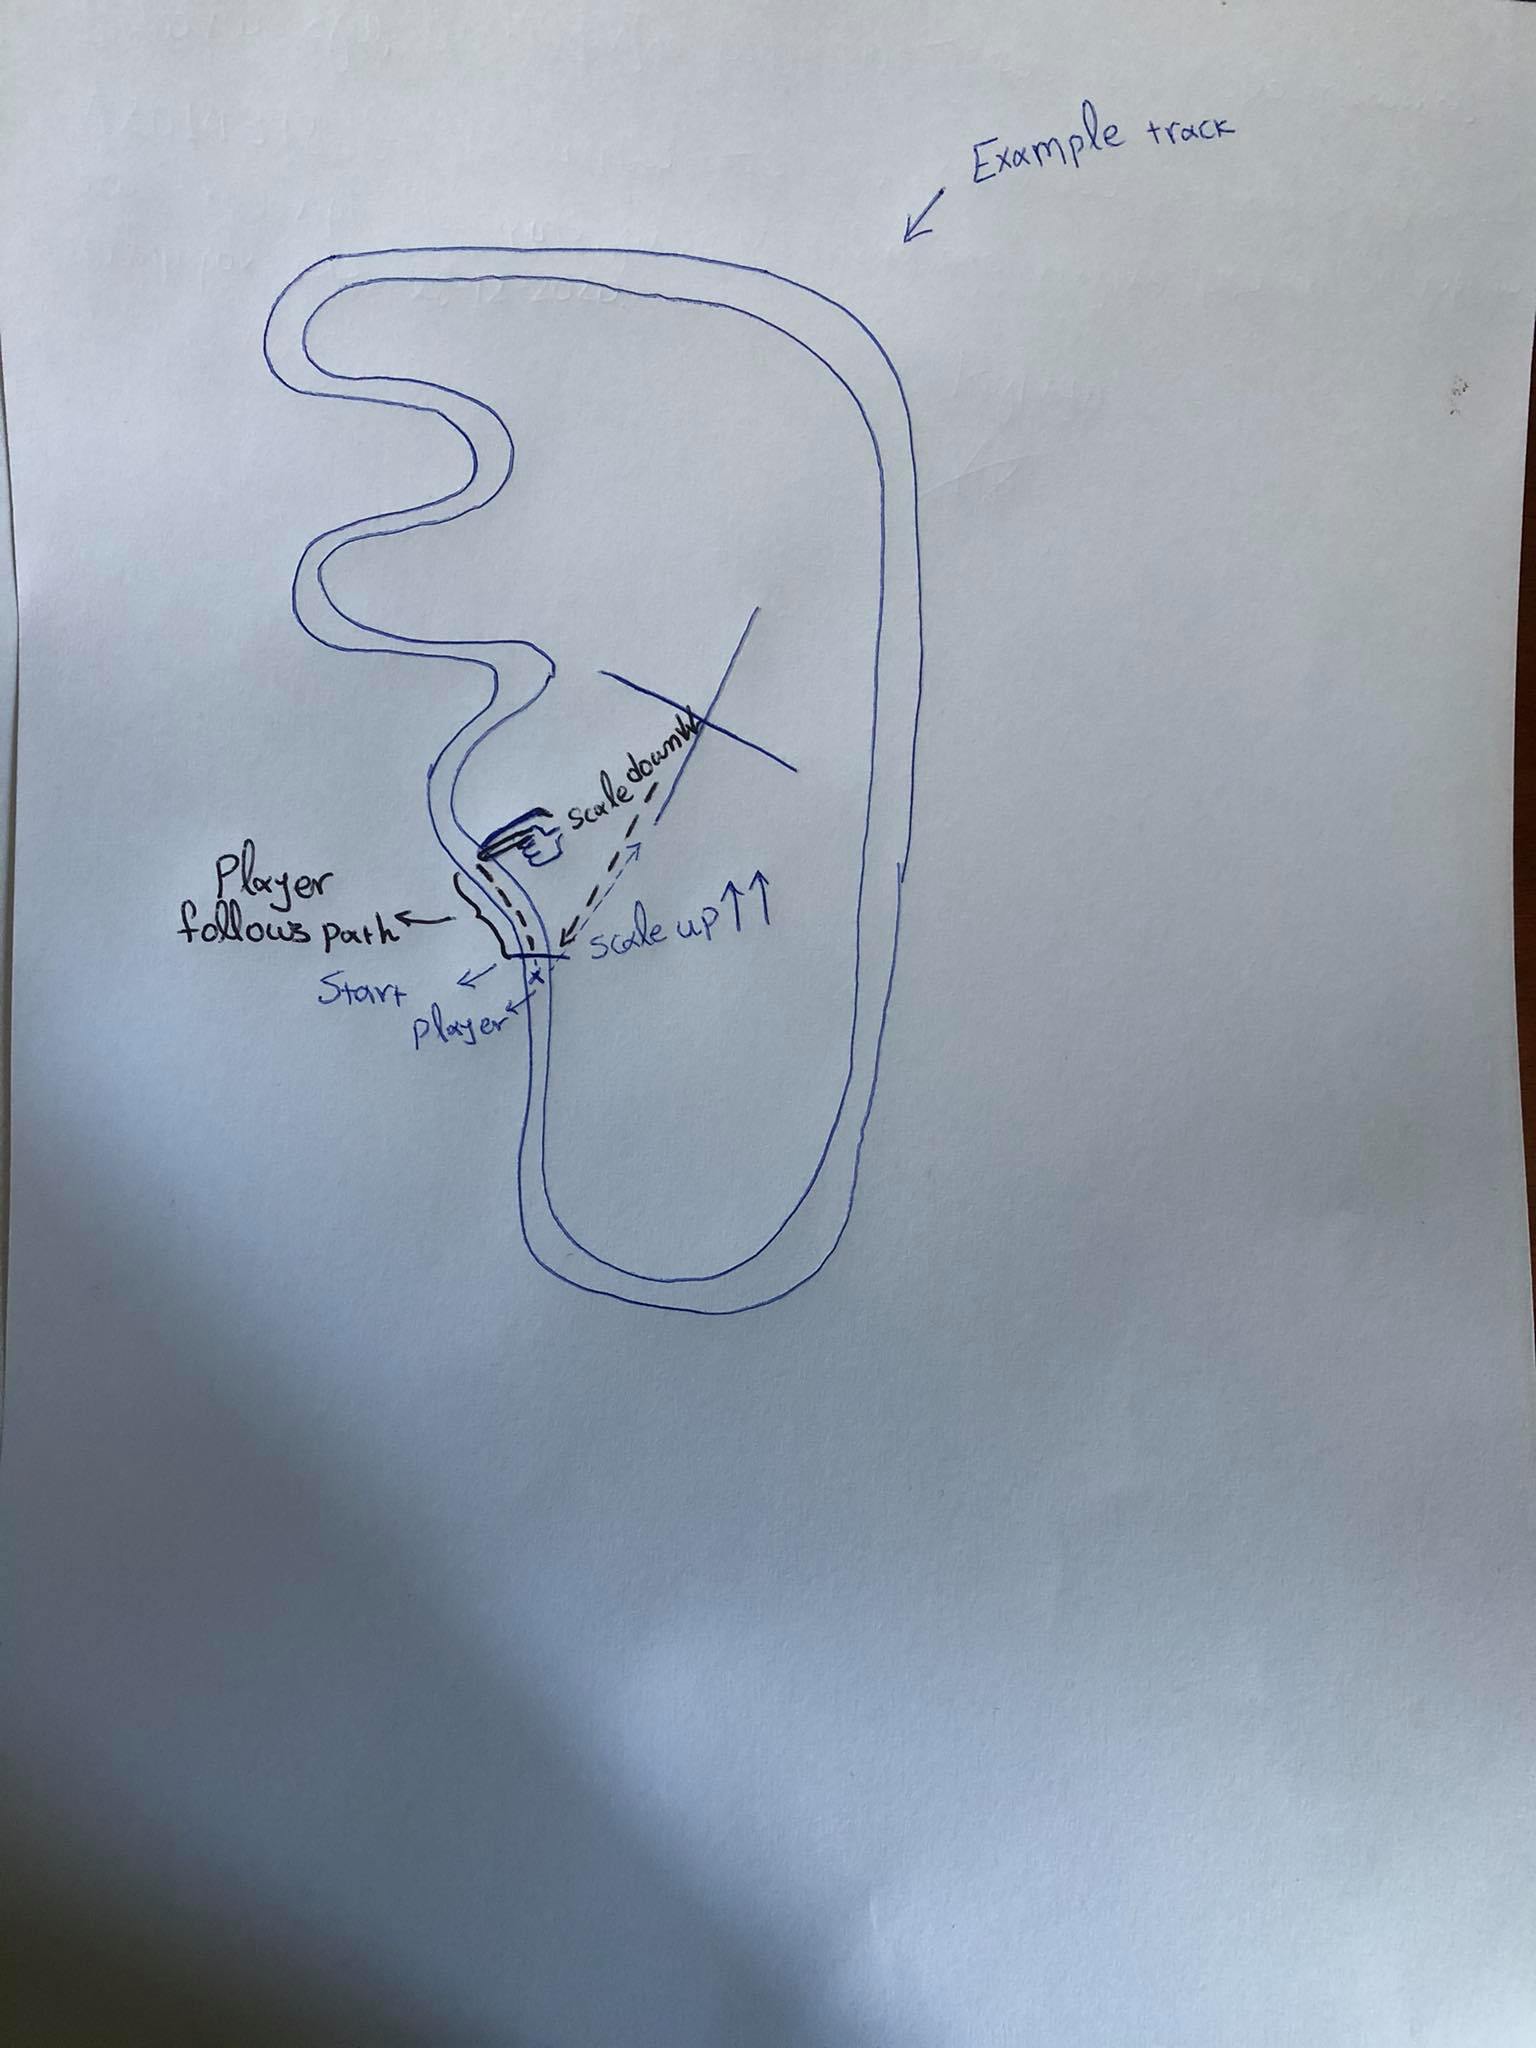 Example track
scale down
Player
follows path
scale up
Start
player